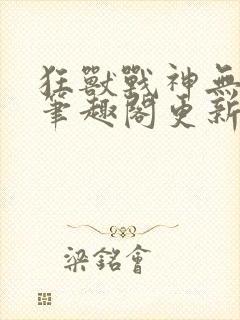 狂獸戰神無
筆趣閣更新
梁銘會